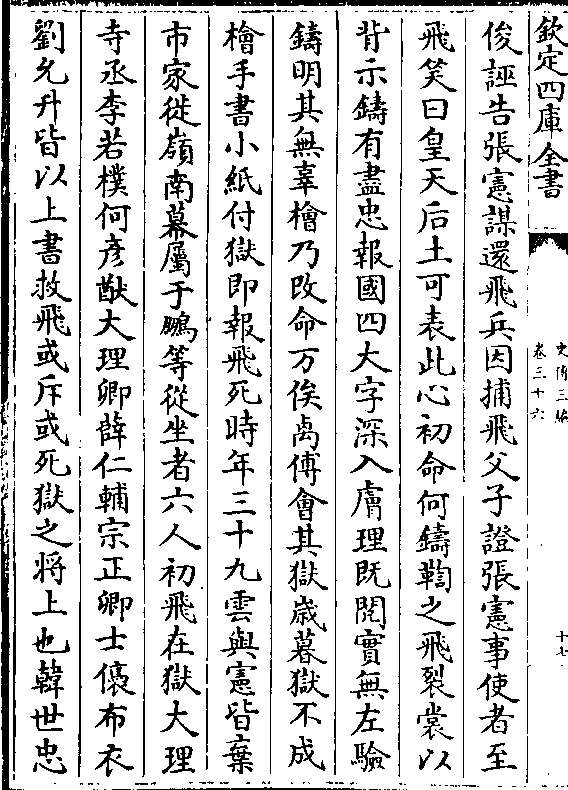 欽定四庫全書
史傳三編
卷三十六
十七
俊誣告張憲謀還飛兵因捕飛父子證張憲事使者至
飛笑曰皇天后土可表此心初命何鑄鞫之飛裂裳以
背示鑄有盡忠報國四大字深入膚理既閱實無左驗
鑄明其無辜檜乃改命万俟卨傅會其獄歲暮獄不成
檜手書小紙付獄即報飛死時年三十九雲與憲皆棄
市家徙嶺南幕屬于鵬等從坐者六人初飛在獄大理
寺丞李若樸何彥猷大理卿薛仁輔宗正卿士㒟布衣
劉允升皆以上書救飛或斥或死獄之將上也韓世忠